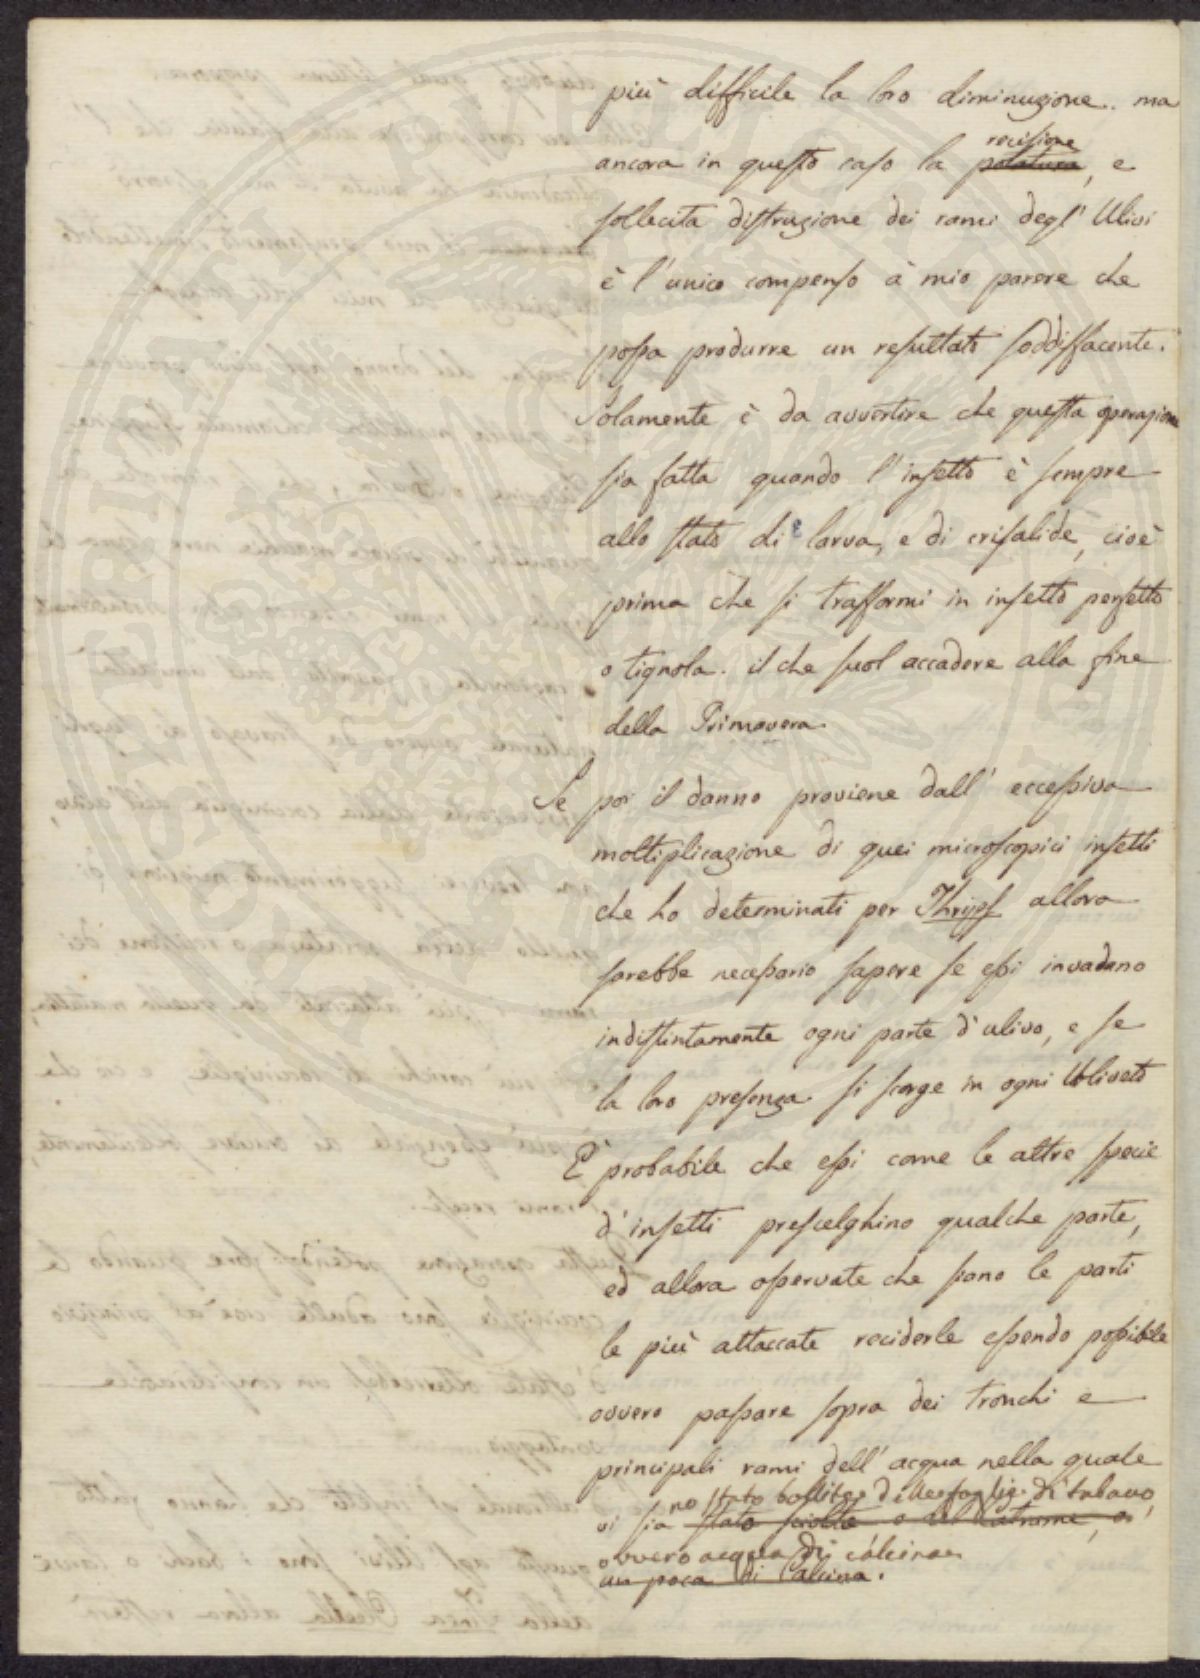 più difficile la loro diminuzione. ma
recisione
ancora in questo caso la potatura, e
sollecita distruzione dei rami degl' Ulivi
è l'unico compenso à mio parere che
possa produrre un resultato soddisfacente.
Solamente è da avvertire che questa operazione
sia fatta quando l'insetto è sempre
allo stato di larva, e di crisalide, cioè
prima che si trasformi in insetto perfetto
o tignola. il che suol accadere alla fine
della Primavera
Se poi il danno proviene dall' eccessiva
moltiplicazione di quei microscopici insetti
che ho determinati per Thrips allora
sarebbe necessario sapere se essi invadano
indistintamente ogni parte d'ulivo, e se
la loro presenza si scorge in ogni Uliveto
E' probabile che essi come le altre specie
d'insetti prescelghino qualche parte,
ed allora osservate che siano le parti
le più attaccate reciderle essendo possibile
ovvero passare sopra dei tronchi e
principali rami dell'acqua nella quale
no state bollite delle foglie di tabacco,
vi sia stato sciolto o del catrame, o
ovvero acqua di calcina
un poca di Calcina.